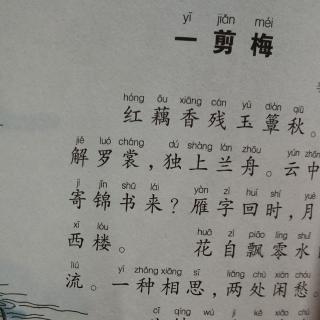 yī jiǎn méi
一剪梅
hóng ǒu xiāng cán yù diàn qiū
红藕香残玉簟秋。
jiě luó cháng dú shàng lán zhōu yún zhōn
解罗裳，独上兰舟。云中
jì jǐn shū lái yàn zì huí shí yuè
寄锦书来？雁字回时，月
xī lóu huā zì piāo líng shuǐ
西楼。 花自飘零水
liú yì zhǒng xiāng sī liǎng chù xián chóu
流。一种相思，两处闲愁。
cǐ qíng wú jì kě xiāo chú